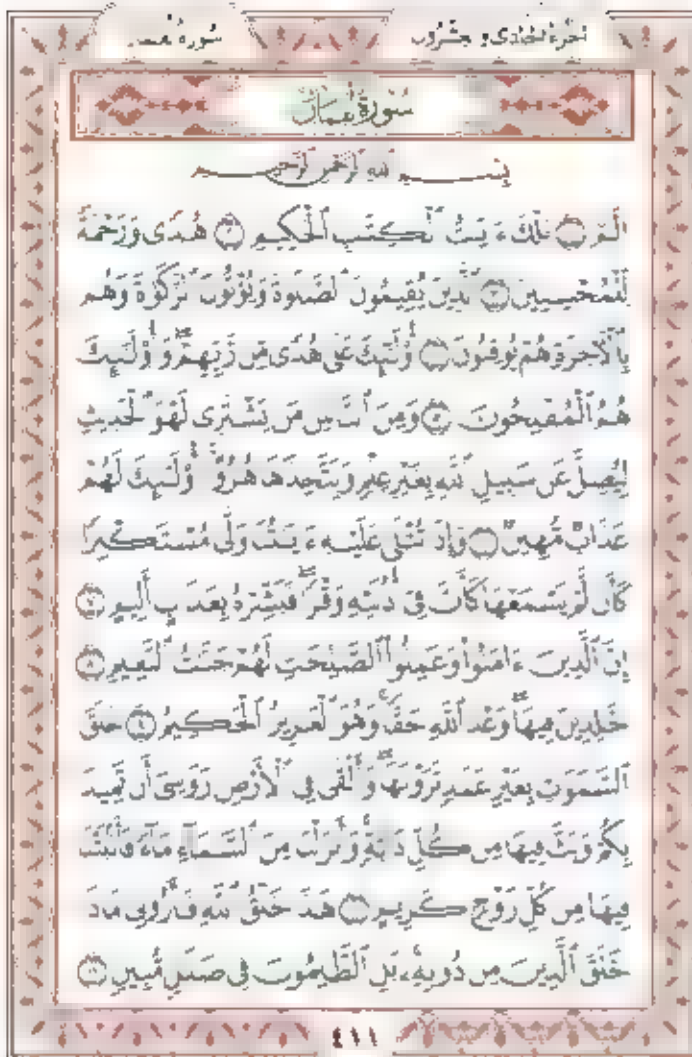 الجزء الحادي والعشرون سورة لقمان
سُورَةُ لُقْمَانَ
بِسْمِ ٱللَّهِ ٱلرَّحْمَٰنِ ٱلرَّحِيمِ
الٓمٓ ١ تِلْكَ ءَايَٰتُ ٱلْكِتَٰبِ ٱلْحَكِيمِ ٢ هُدًى وَرَحْمَةً
لِّلْمُحْسِنِينَ ٣ ٱلَّذِينَ يُقِيمُونَ ٱلصَّلَوٰةَ وَيُؤْتُونَ ٱلزَّكَوٰةَ وَهُم
بِٱلْءَاخِرَةِ هُمْ يُوقِنُونَ ٤ أُو۟لَٰٓئِكَ عَلَىٰ هُدًى مِّن رَّبِّهِمْ ۖ وَأُو۟لَٰٓئِكَ
هُمُ ٱلْمُفْلِحُونَ ٥ وَمِنَ ٱلنَّاسِ مَن يَشْتَرِى لَهْوَ ٱلْحَدِيثِ
لِيُضِلَّ عَن سَبِيلِ ٱللَّهِ بِغَيْرِ عِلْمٍ وَيَتَّخِذَهَا هُزُوًا ۚ أُو۟لَٰٓئِكَ لَهُمْ
عَذَابٌ مُّهِينٌ ٦ وَإِذَا تُتْلَىٰ عَلَيْهِ ءَايَٰتُنَا وَلَّىٰ مُسْتَكْبِرًا
كَأَن لَّمْ يَسْمَعْهَا كَأَنَّ فِىٓ أُذُنَيْهِ وَقْرًا ۖ فَبَشِّرْهُ بِعَذَابٍ أَلِيمٍ ٧
إِنَّ ٱلَّذِينَ ءَامَنُوا۟ وَعَمِلُوا۟ ٱلصَّٰلِحَٰتِ لَهُمْ جَنَّٰتُ ٱلنَّعِيمِ ٨
خَٰلِدِينَ فِيهَا ۖ وَعْدَ ٱللَّهِ حَقًّا ۚ وَهُوَ ٱلْعَزِيزُ ٱلْحَكِيمُ ٩ خَلَقَ
ٱلسَّمَٰوَٰتِ بِغَيْرِ عَمَدٍ تَرَوْنَهَا ۖ وَأَلْقَىٰ فِى ٱلْأَرْضِ رَوَٰسِىَ أَن تَمِيدَ
بِكُمْ وَبَثَّ فِيهَا مِن كُلِّ دَآبَّةٍ ۚ وَأَنزَلْنَا مِنَ ٱلسَّمَآءِ مَآءً فَأَنۢبَتْنَا
فِيهَا مِن كُلِّ زَوْجٍ كَرِيمٍ ١٠ هَٰذَا خَلْقُ ٱللَّهِ فَأَرُونِى مَاذَا
خَلَقَ ٱلَّذِينَ مِن دُونِهِۦ ۚ بَلِ ٱلظَّٰلِمُونَ فِى ضَلَٰلٍ مُّبِينٍ ١١
٤١١